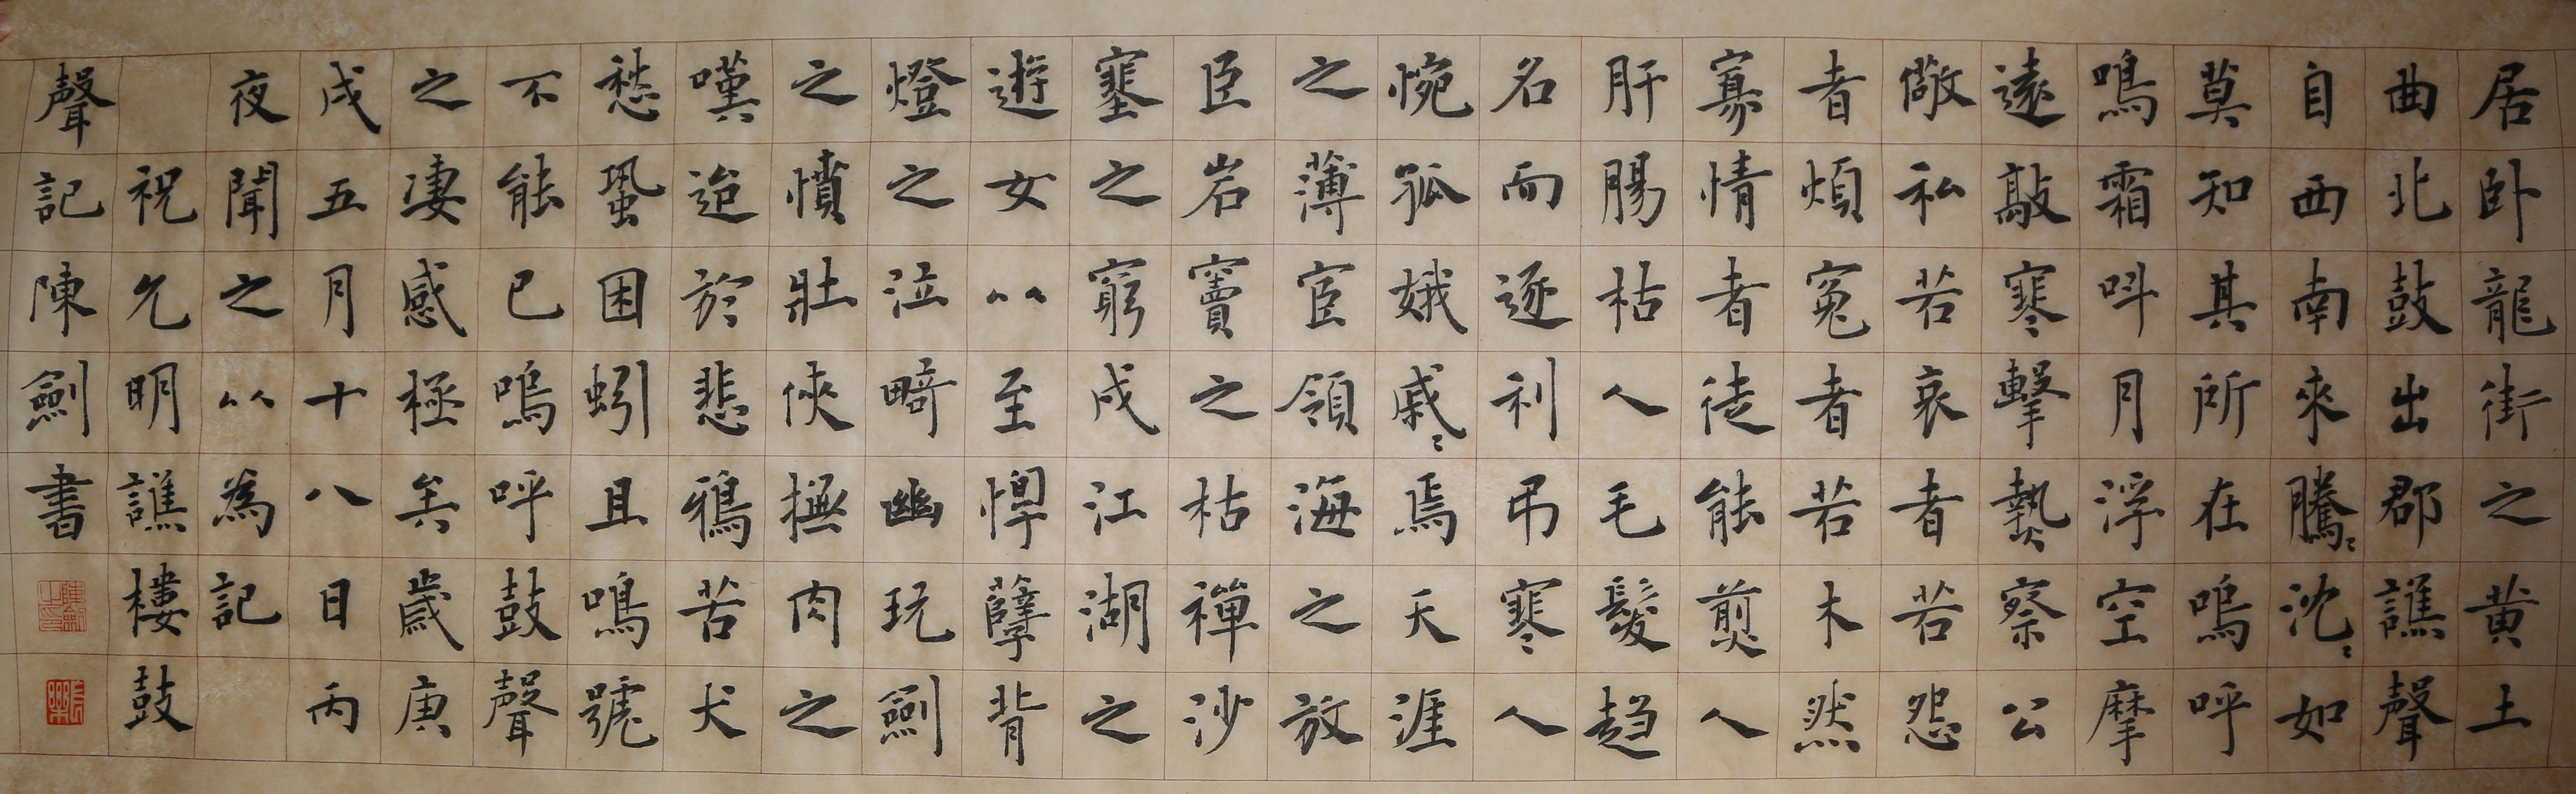 居卧龍街之黄土
曲北鼓出郡譙聲
自西南來騰〻沈〻如
莫知其所在嗚呼
鳴霜叫月浮空摩
遠敲寒擊熱察公
儆私若哀者若怨
者煩冤者若木然
寡情者徒能煎人
肝腸枯人毛髮趨
名而逐利弔寒人
惋孤娥戚〻焉天涯
之薄宦領海之放
臣岩竇之枯禪沙
塞之窮戍江湖之
遊女以至悍孽背
燈之泣畸幽玩劍
之憤壯俠撫肉之
嘆迨於悲鴉苦犬
愁蛩困蚓且鳴號
不能已嗚呼鼓聲
之凄感極矣歲庚
戌五月十八日丙
夜聞之以為記
祝允明譙樓鼓
聲記陳劍書